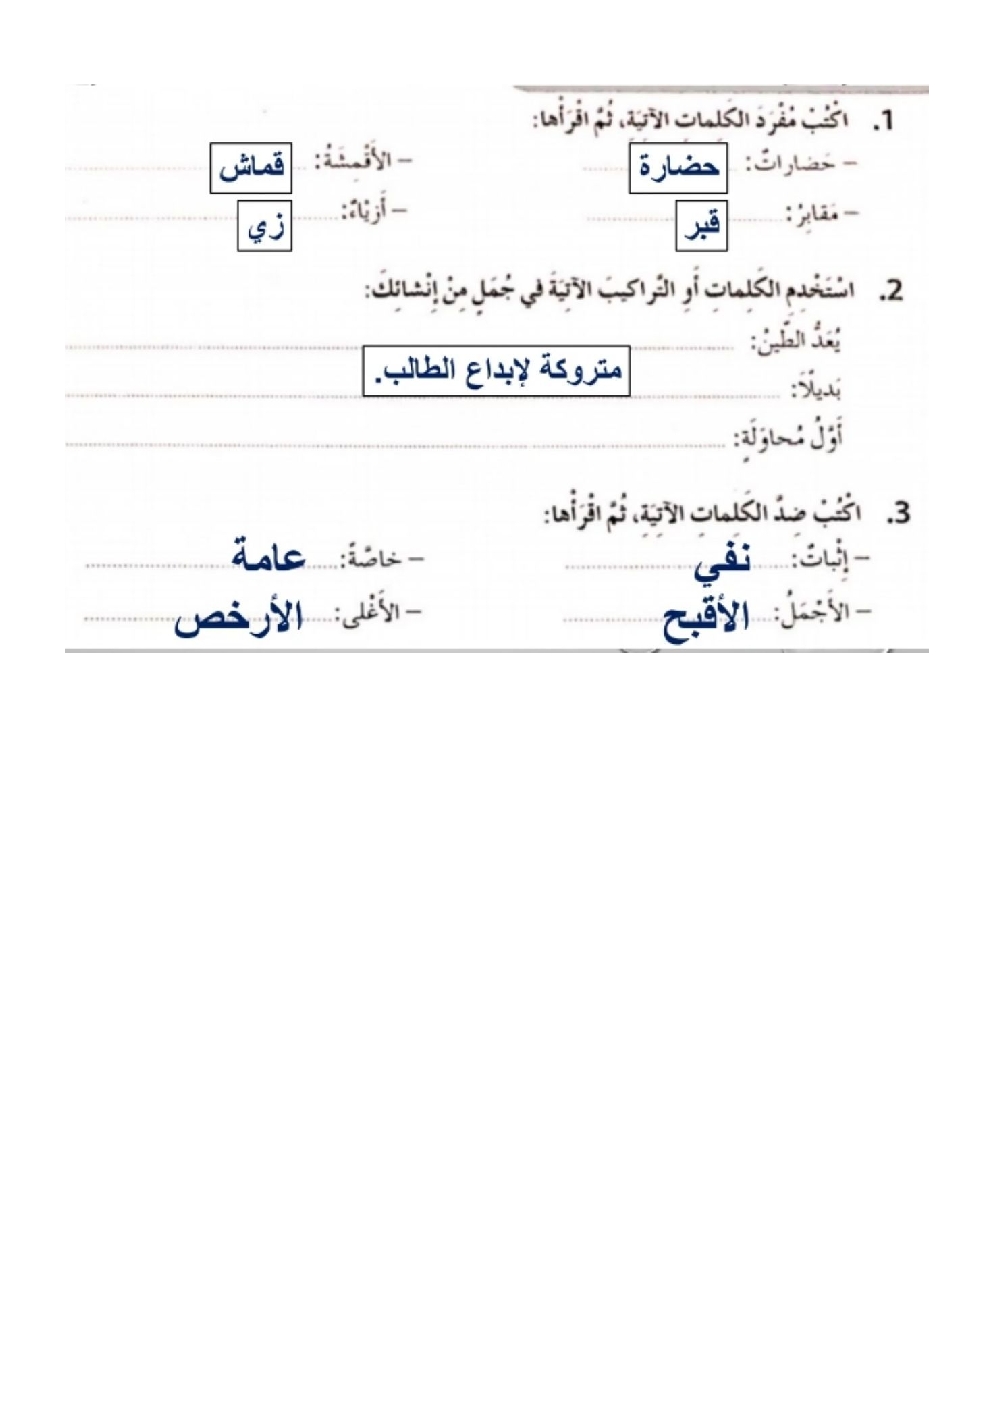 1. اكْتُبْ مُفْرَدَ الكَلِماتِ الآتِيَةِ، ثُمَّ اقْرَأْها:
– حَضاراتٌ: حضارة – الأَقْمِشَةُ: قماش
– مَقابِرُ: قبر – أَزْياءٌ: زي
2. اسْتَخْدِمِ الكَلِماتِ أَوِ التَّراكيبَ الآتِيَةَ في جُمَلٍ مِنْ إِنْشائِكَ:
يُعَدُّ الطّينُ:
متروكة لإبداع الطالب.
بَديلًا:
أَوَّلُ مُحاوَلَةٍ:
3. اكْتُبْ ضِدَّ الكَلِماتِ الآتِيَةِ، ثُمَّ اقْرَأْها:
– إِثْباتٌ: نفي – خاصَّةً: عامة
– الأَجْمَلُ: الأقبح – الأَغْلى: الأرخص